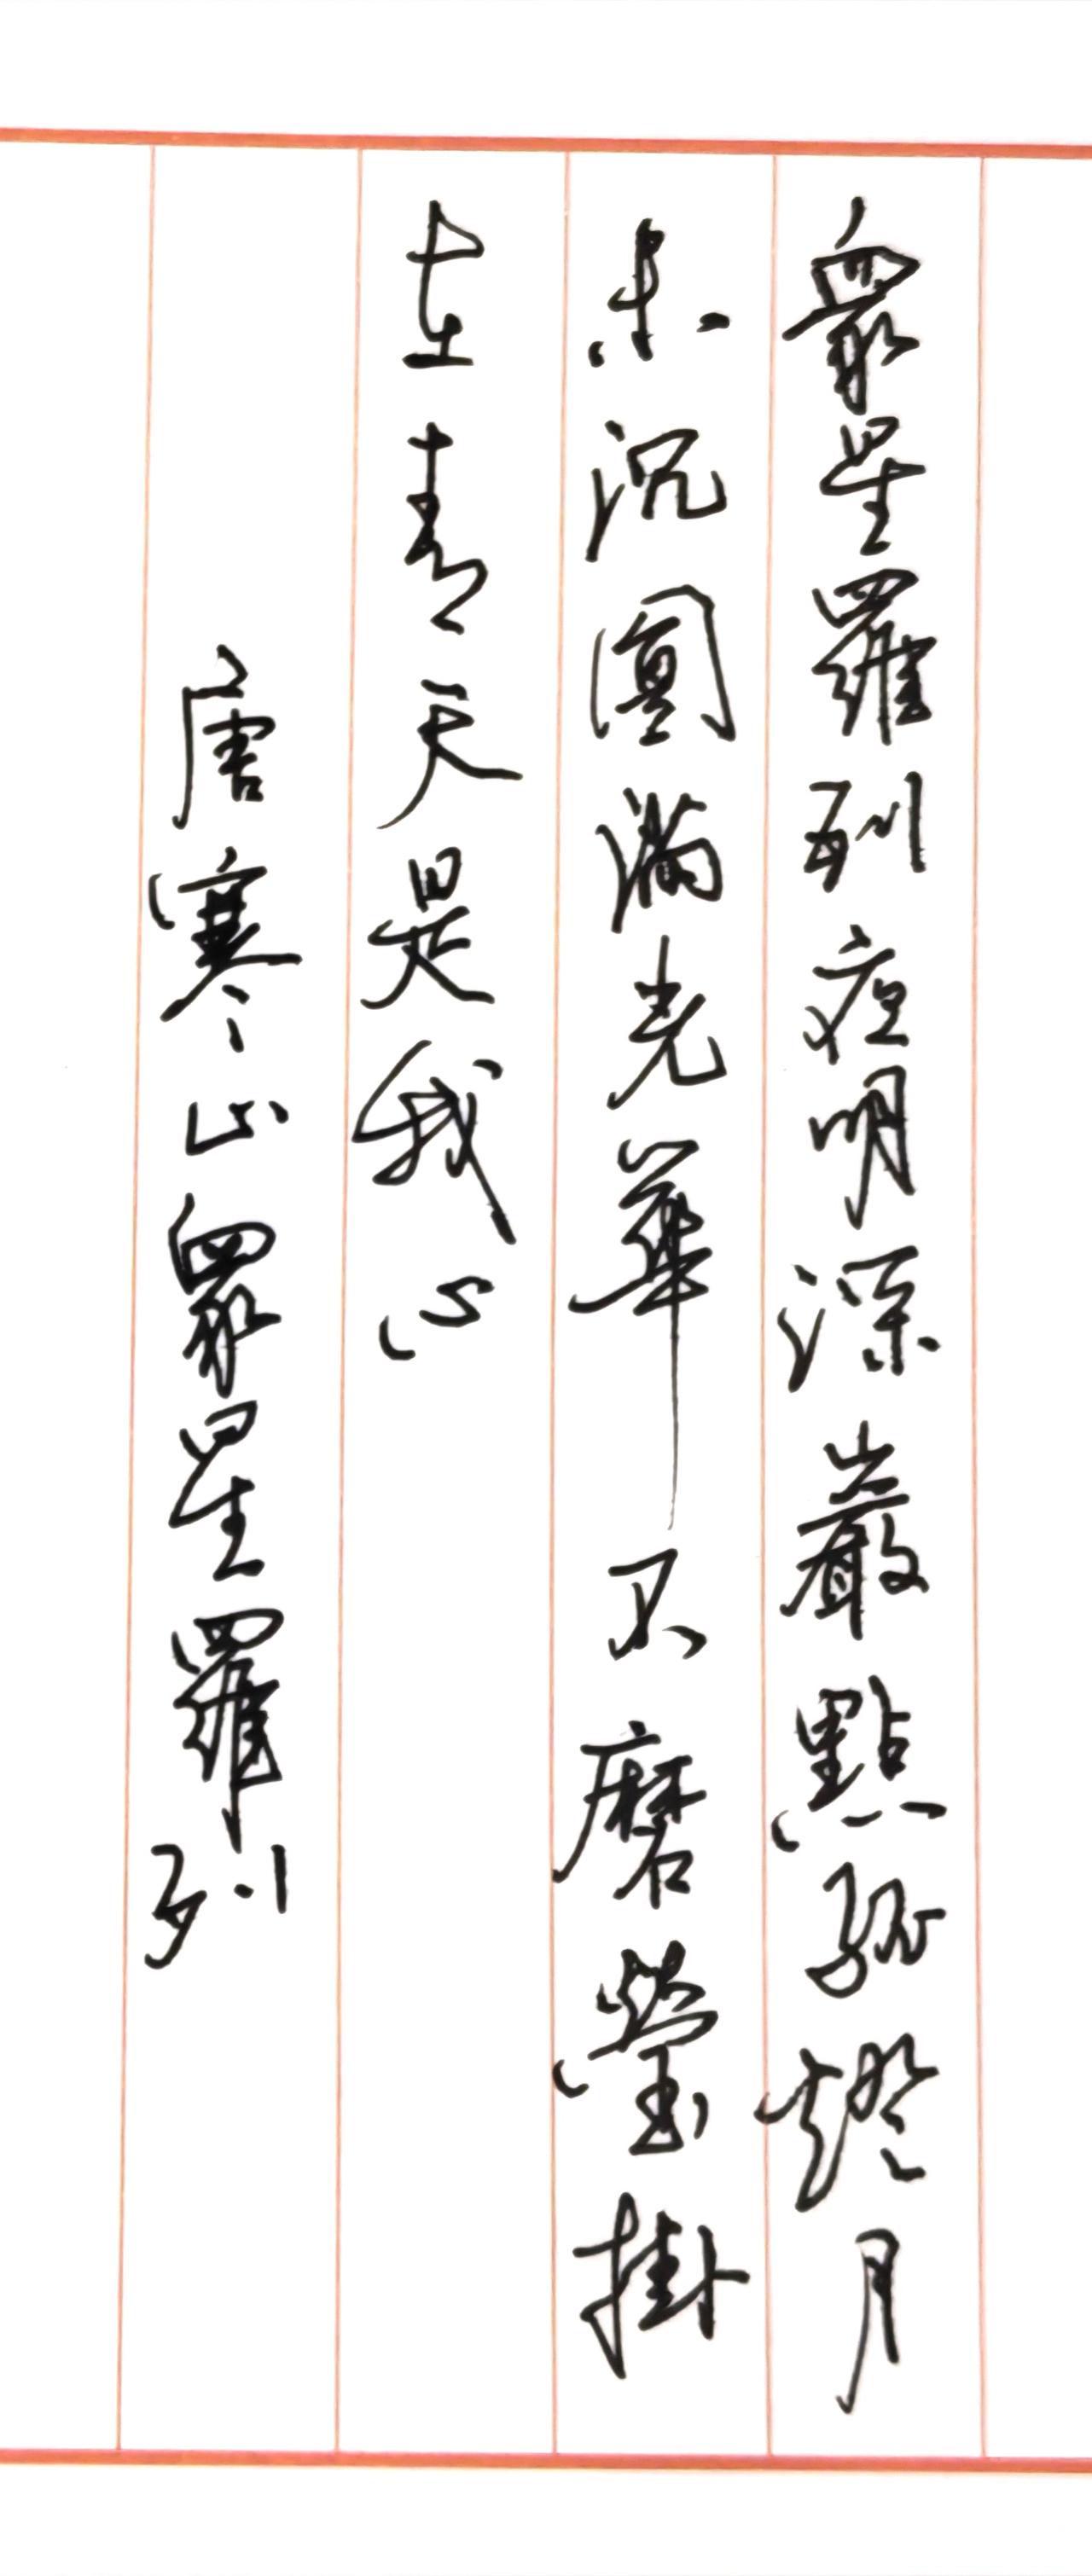 眾星羅列夜明深巖點孤燈月
未沉圓滿光華不磨瑩掛
在青天是我心
唐寒山眾星羅列